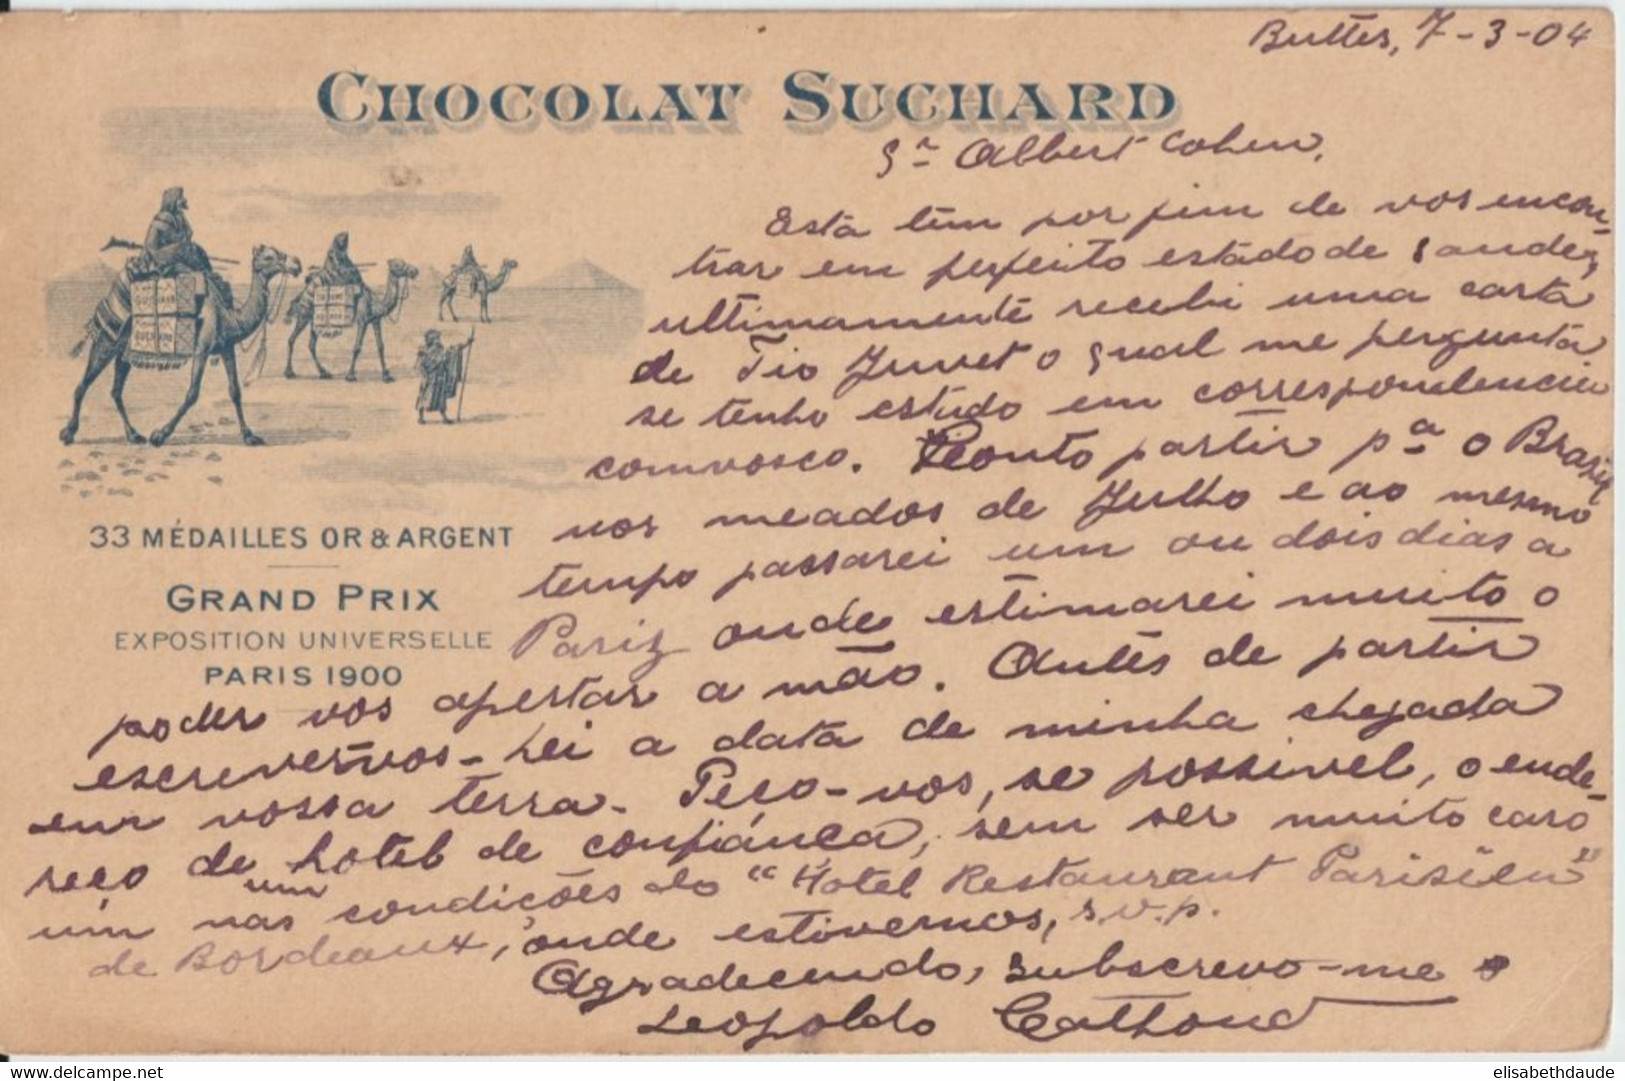 Buttes, 7-3-04
CHOCOLAT SUCHARD
Sr Albert Cohen,
Está tem por fim de vos encon-
trar em perfeito estado de saude,
ultimamente recebi uma carta
de Tio Juvet o qual me pergunta
se tenho estado em correspondencia
comvosco. Conto partir pa o Brazil
nos meados de Julho e ao mesmo
tempo passarei um ou dois dias a
Pariz onde estimarei muito o
poder vos apertar a mão. Antes de partir
escrever-vos-hei a data de minha chegada
em vossa terra. Peço-vos, se possivel, o ende-
reço de um hotel de confiança, sem ser muito caro
um nas condições do "Hotel Restaurant Parisien"
de Bordeaux, onde estivemos, s.v.p.
Agradecendo, subscrevo-me
Leopoldo
33 MÉDAILLES OR & ARGENT
GRAND PRIX
EXPOSITION UNIVERSELLE
PARIS 1900
SUCHARD
SUCHARD
delcampe.net
elisabethdaude